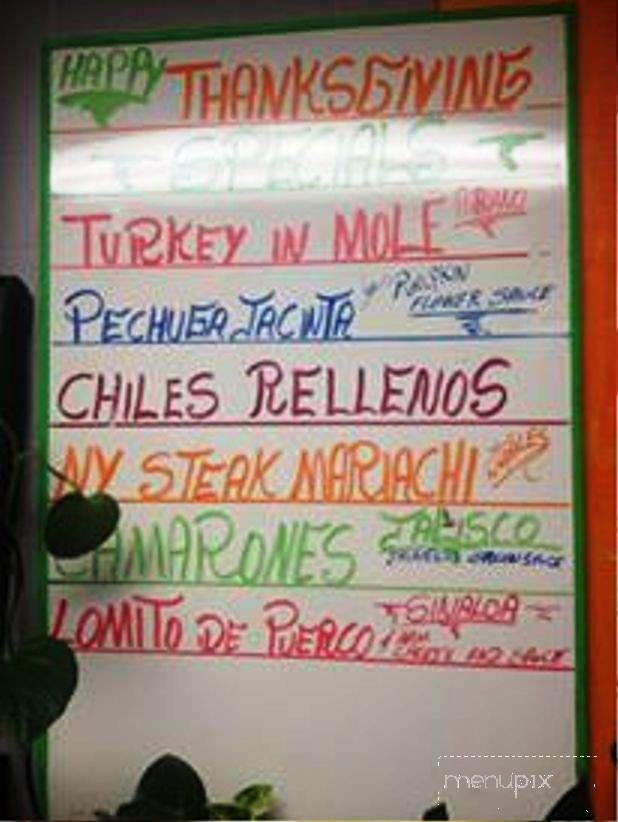 HAPPY THANKSGIVING
SPECIALS
TURKEY IN MOLE
PECHUGA JACINTA
FLOWER SAUCE
CHILES RELLENOS
NY STEAK MARIACHI
CAMARONES JALISCO
LOMITO DE PUERCO SINALOA
AND SAUCE
menupix